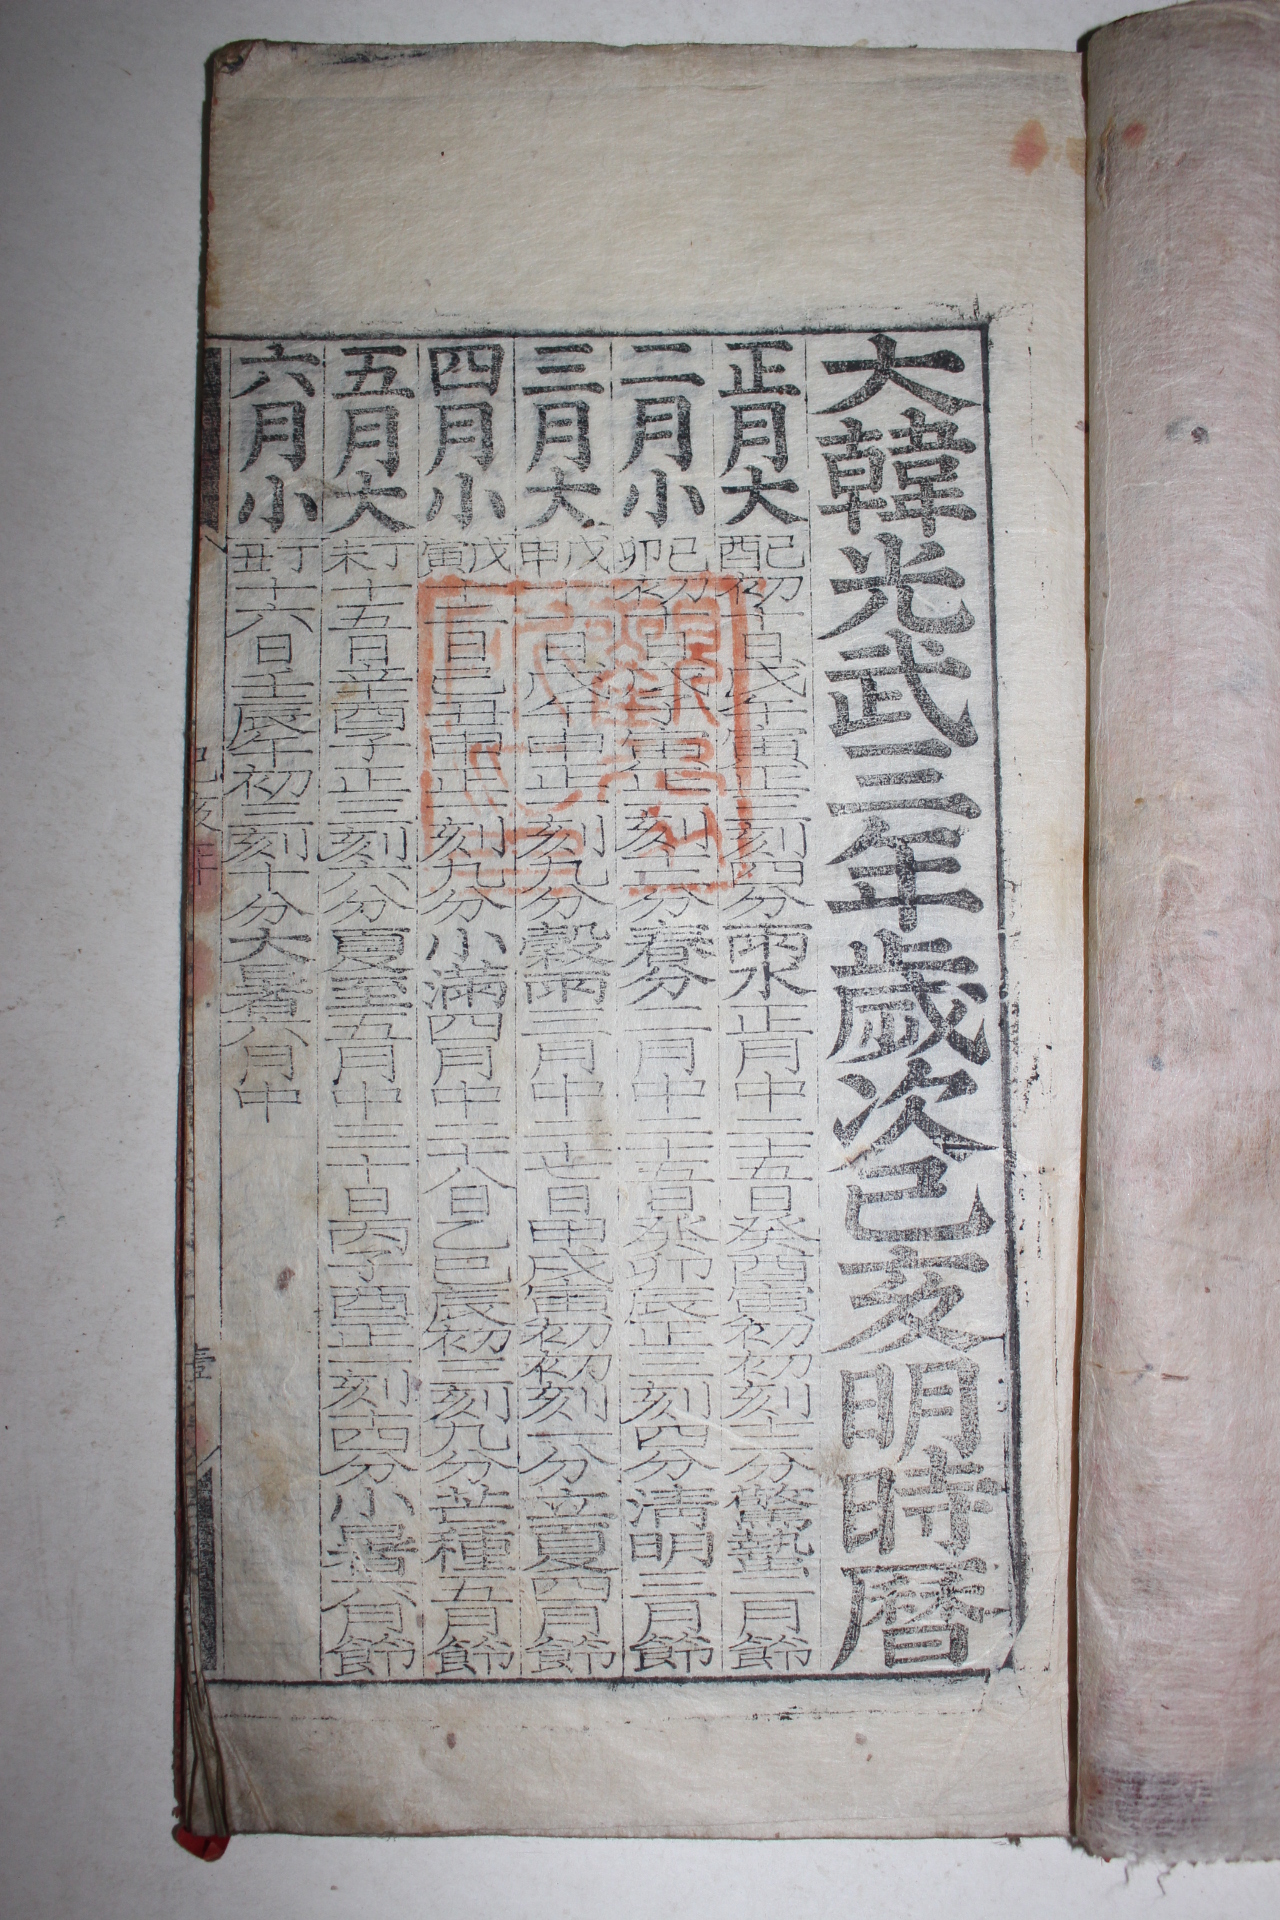 大韓光武三年歲次己亥明時曆
正月大己酉初十日戊午寅正三刻四分雨水正月中二十五日癸酉寅初初刻十三分驚蟄二月節
二月小己卯初十日戊子寅正一刻十二分春分二月中二十五日癸卯辰正三刻四分清明三月節
三月大戊申十一日戊午申正一刻九分穀雨三月中二十七日甲戌寅初初刻一分立夏四月節
四月小戊寅十二日己丑申正一刻九分小滿四月中二十八日乙巳辰初三刻九分芒種五月節
五月大丁未十五日辛酉子正三刻六分夏至五月中三十日丙子酉正一刻十四分小暑六月節
六月小丁丑十六日壬辰午初三刻十分大暑六月中
己亥年 壹